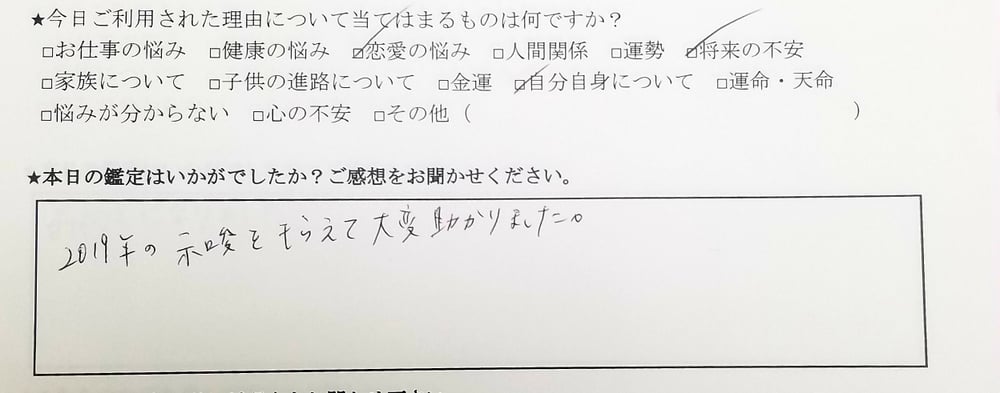 ★今日ご利用された理由について当てはまるものは何ですか？
□お仕事の悩み □健康の悩み ☑恋愛の悩み □人間関係 □運勢 ☑将来の不安
□家族について □子供の進路について □金運 ☑自分自身について □運命・天命
□悩みが分からない □心の不安 □その他（ ）
★本日の鑑定はいかがでしたか？ご感想をお聞かせください。
2019年の示唆をもらえて大変助かりました。